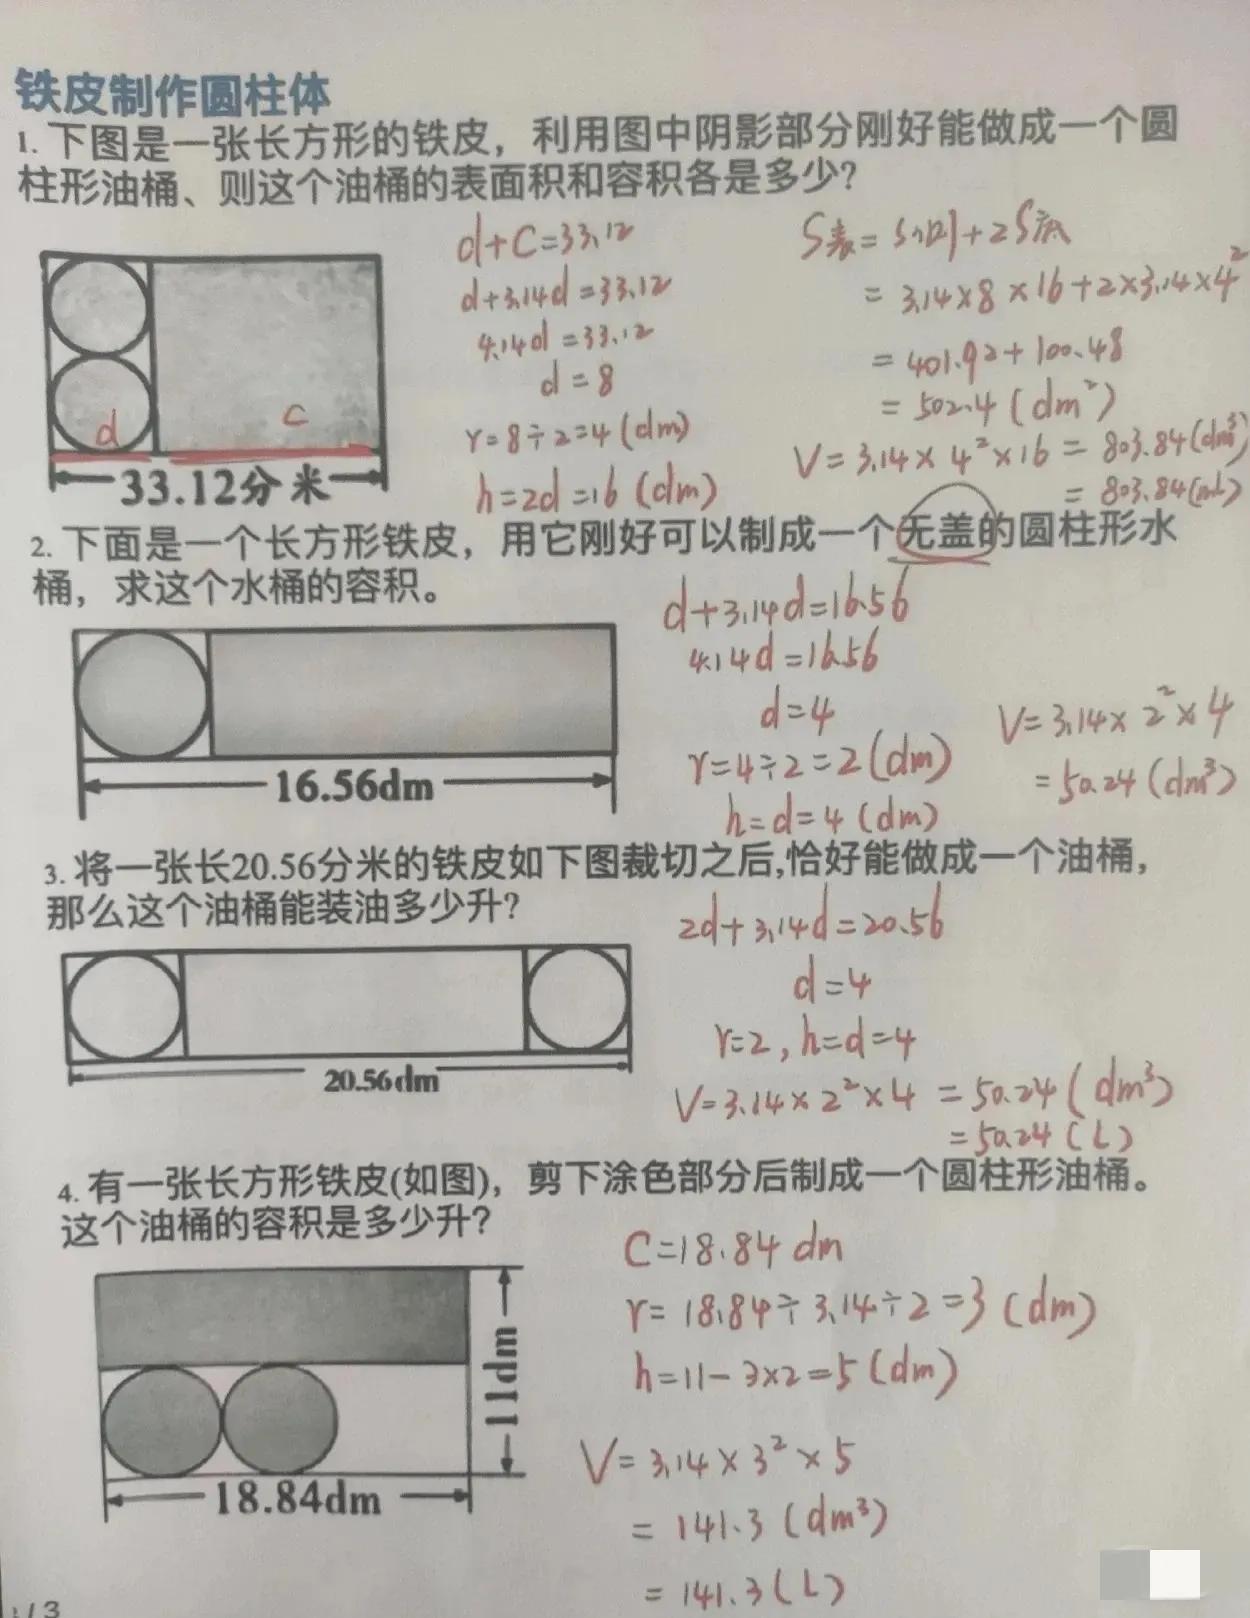 铁皮制作圆柱体
1. 下图是一张长方形的铁皮，利用图中阴影部分刚好能做成一个圆
柱形油桶、则这个油桶的表面积和容积各是多少?
d
C
33.12分米
d+C=33.12
d+3.14d=33.12
4.14d=33.12
d=8
r=8÷2=4(dm)
h=2d=16(dm)
S表=S侧+2S底
=3.14×8×16+2×3.14×4²
=401.92+100.48
=502.4(dm²)
V=3.14×4²×16=803.84(dm³)
=803.84(mL)
2. 下面是一个长方形铁皮，用它刚好可以制成一个无盖的圆柱形水
桶，求这个水桶的容积。
16.56dm
d+3.14d=16.56
4.14d=16.56
d=4
r=4÷2=2(dm)
h=d=4(dm)
V=3.14×2²×4
=50.24(dm³)
3. 将一张长20.56分米的铁皮如下图裁切之后,恰好能做成一个油桶，
那么这个油桶能装油多少升?
20.56dm
2d+3.14d=20.56
d=4
r=2,h=d=4
V=3.14×2²×4=50.24(dm³)
=50.24(L)
4. 有一张长方形铁皮(如图)，剪下涂色部分后制成一个圆柱形油桶。
这个油桶的容积是多少升?
11dm
18.84dm
C=18.84dm
r=18.84÷3.14÷2=3(dm)
h=11-3×2=5(dm)
V=3.14×3²×5
=141.3(dm³)
=141.3(L)
/3